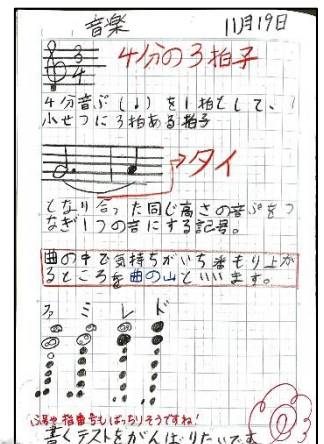 音楽 11月19日
3
4
4分の3拍子
4分音ぷ(♩)を1拍として、
小せつに3拍ある拍子
→タイ
となり合った同じ高さの音ぷをつ
なぎ1つの音にする記号。
曲の中で気持ちがいち番もり上が
るところを曲の山といいます。
ファ ミ レ ド
指番号もばっちりそうですね!
書くテストをがんばりたいです